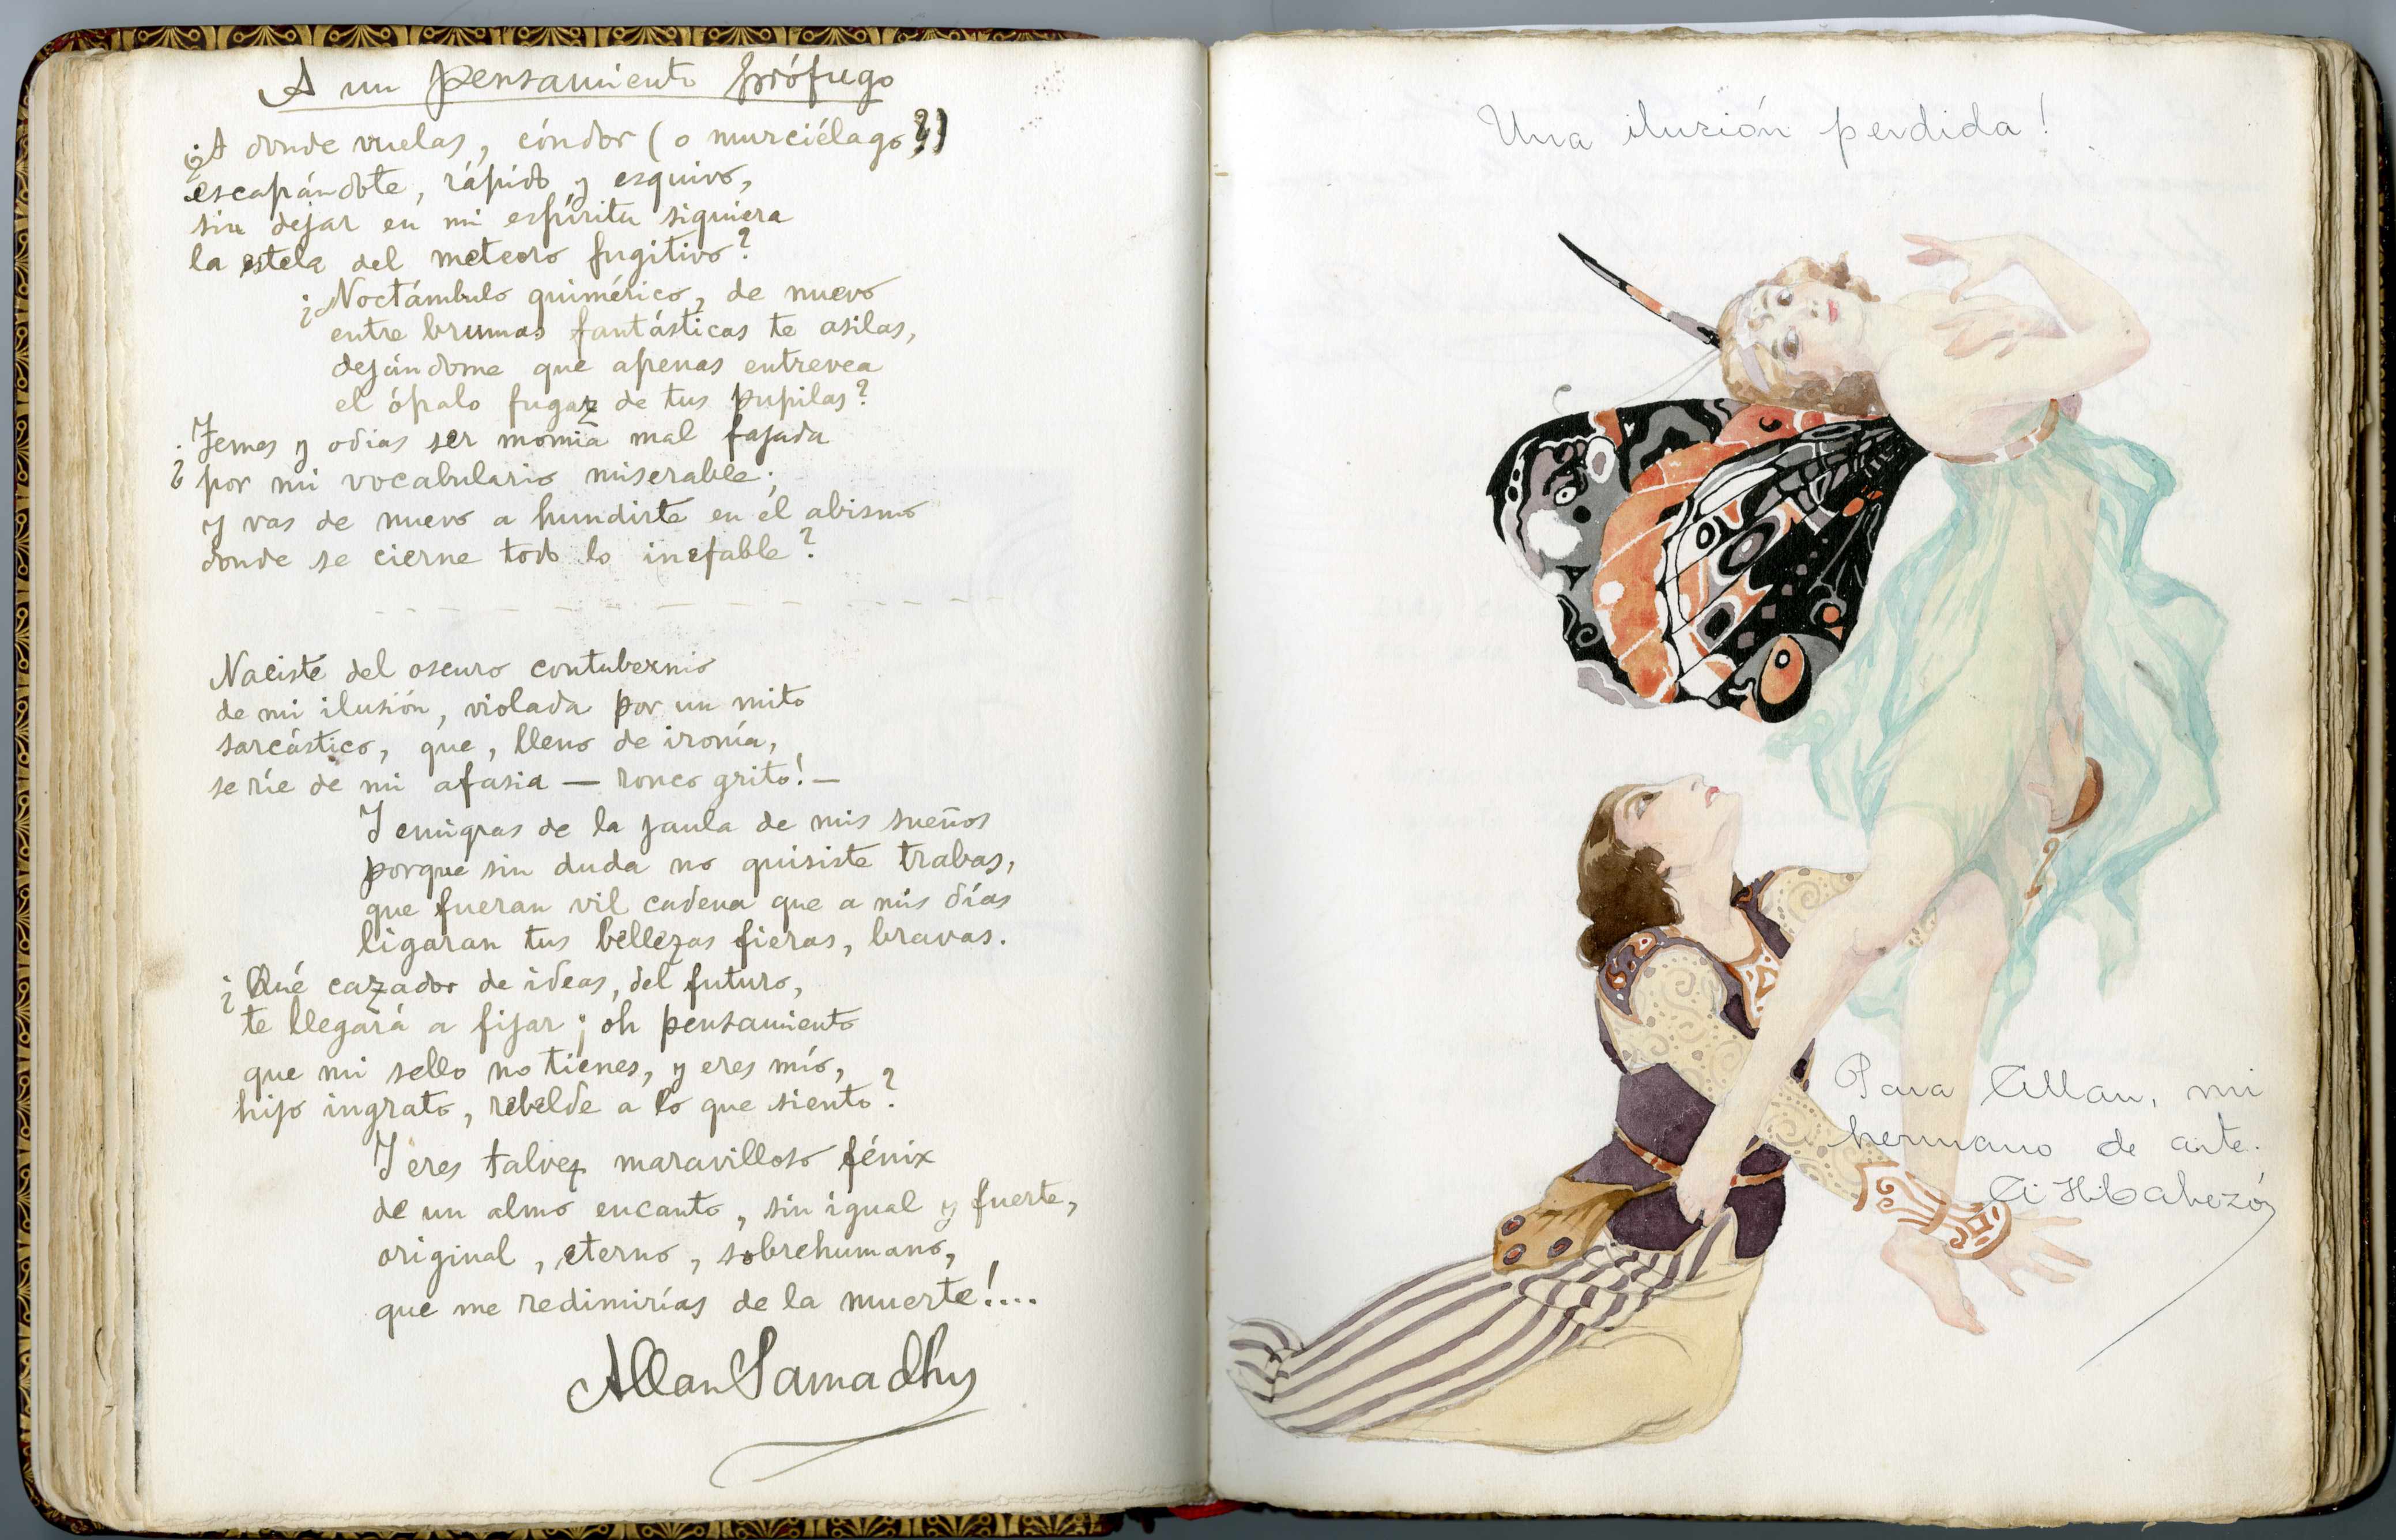 A un pensamiento prófugo
¿A donde vuelas, cóndor (o murciélago?)
escapándote, rápido y esquivo,
sin dejar en mi espíritu siquiera
la estela del meteoro fugitivo?
¿Noctámbulo quimérico, de nuevo
entre brumas fantásticas te asilas,
dejándome que apenas entrevea
el ópalo fugaz de tus pupilas?
¿Temes y odias ser momia mal fajada
por mi vocabulario miserable;
y vas de nuevo a hundirte en el abismo
donde se cierne todo lo inefable?
Naciste del oscuro contubernio
de mi ilusión, violada por un mito
sarcástico, que, lleno de ironía,
se ríe de mi afasia — ronco grito! —
Y emigras de la jaula de mis sueños
porque sin duda no quisiste trabas,
que fueran vil cadena que a mis días
ligaran tus bellezas fieras, bravas.
¿Qué cazador de ideas, del futuro,
te llegará a fijar ¡oh pensamiento
que mi sello no tienes, y eres mío,
hijo ingrato, rebelde a lo que siento?
Y eres talvez maravilloso fénix
de un almo encanto, sin igual y fuerte,
original, eterno, sobrehumano,
que me redimirías de la muerte!....
Allan Samadhy
Una ilusión perdida!
Para Allan, mi
hermano de arte.
Cabezón